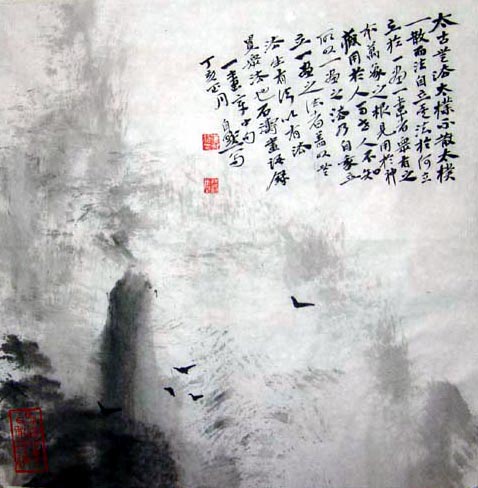 太古無法太樸不散太樸
一散而法自立矣法於何立
立於一画一畫者眾有之
本萬象之根見用於神
藏用於人而世人不知
所以一画之法乃自我立
立一画之法者蓋以無
法生有法以有法
貫眾法也石濤畫語錄
一畫章中句
丁亥正月